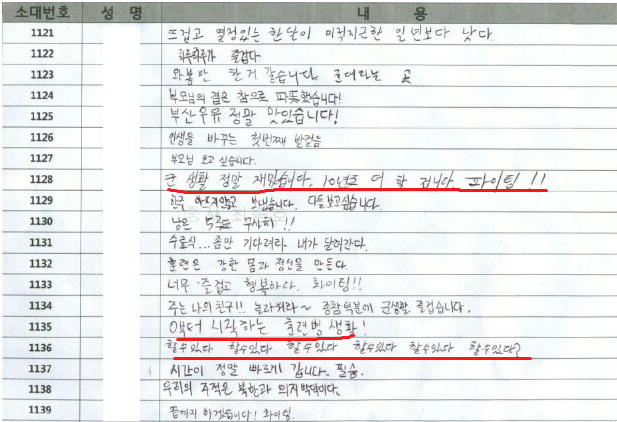 소대번호 성 명 내 용
1121 뜨겁고 열정있는 한달이 미적지근한 일년보다 낫다.
1122 하루하루가 즐겁다
1123 와볼만 한거 같습니다 군대라는 곳
1124 부모님의 곁은 참으로 따뜻했습니다!
1125 부산우유 정말 맛있습니다!
1126 인생을 바꾸는 첫번째 발걸음
1127 부모님 보고 싶습니다.
1128 군 생활 정말 재밌습니다. 10년도 더 할 겁니다 파이팅!!
1129 한주 보냈습니다. 다들보고싶습니다.
1130 남은 5주도 무사히!!
1131 수료식... 좀만 기다려라 내가 달려간다.
1132 훈련은 강한 몸과 정신을 만든다.
1133 너무 즐겁고 행복하다. 화이팅!!
1134 주는 나의친구!! 놀라워라~ 종참덕분에 군생활 즐겁습니다.
1135 0부터 시작하는 훈련병 생활!
1136 할수있다 할수있다 할수있다 할수있다 할수있다 할수있다?
1137 시간이 정말 빠르게 갑니다. 필승.
1138 우리의 주적은 북한과 의지박약이다.
1139 끝까지 하겠습니다! 화이팅.